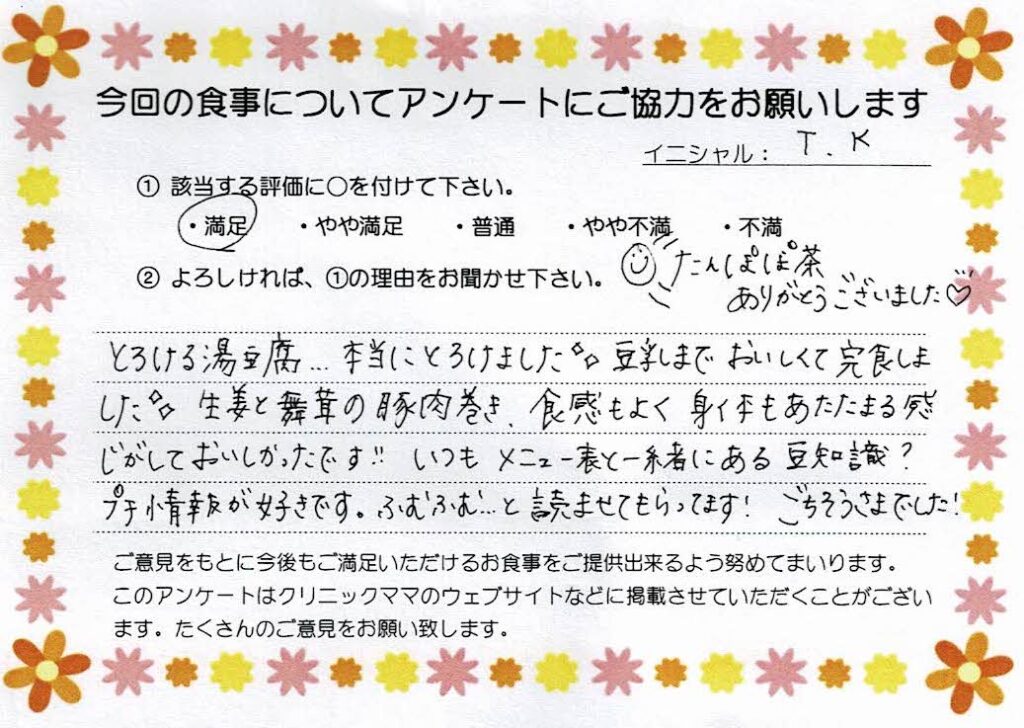 今回の食事についてアンケートにご協力をお願いします
イニシャル： T.K
① 該当する評価に○を付けて下さい。
・満足 ・やや満足 ・普通 ・やや不満 ・不満
② よろしければ、①の理由をお聞かせ下さい。
たんぽぽ茶
ありがとうございました♡
とろける湯豆腐…本当にとろけました 豆乳しまで おいしくて完食しま
した 生姜と舞茸の豚肉巻き、食感もよく 身体もあたたまる感
じがしておいしかったです!! いつもメニュー表と一緒にある豆知識?
プチ情報が好きです。ふむふむ…と読ませてもらってます! ごちそうさまでした!
ご意見をもとに今後もご満足いただけるお食事をご提供出来るよう努めてまいります。
このアンケートはクリニックママのウェブサイトなどに掲載させていただくことがござい
ます。たくさんのご意見をお願い致します。